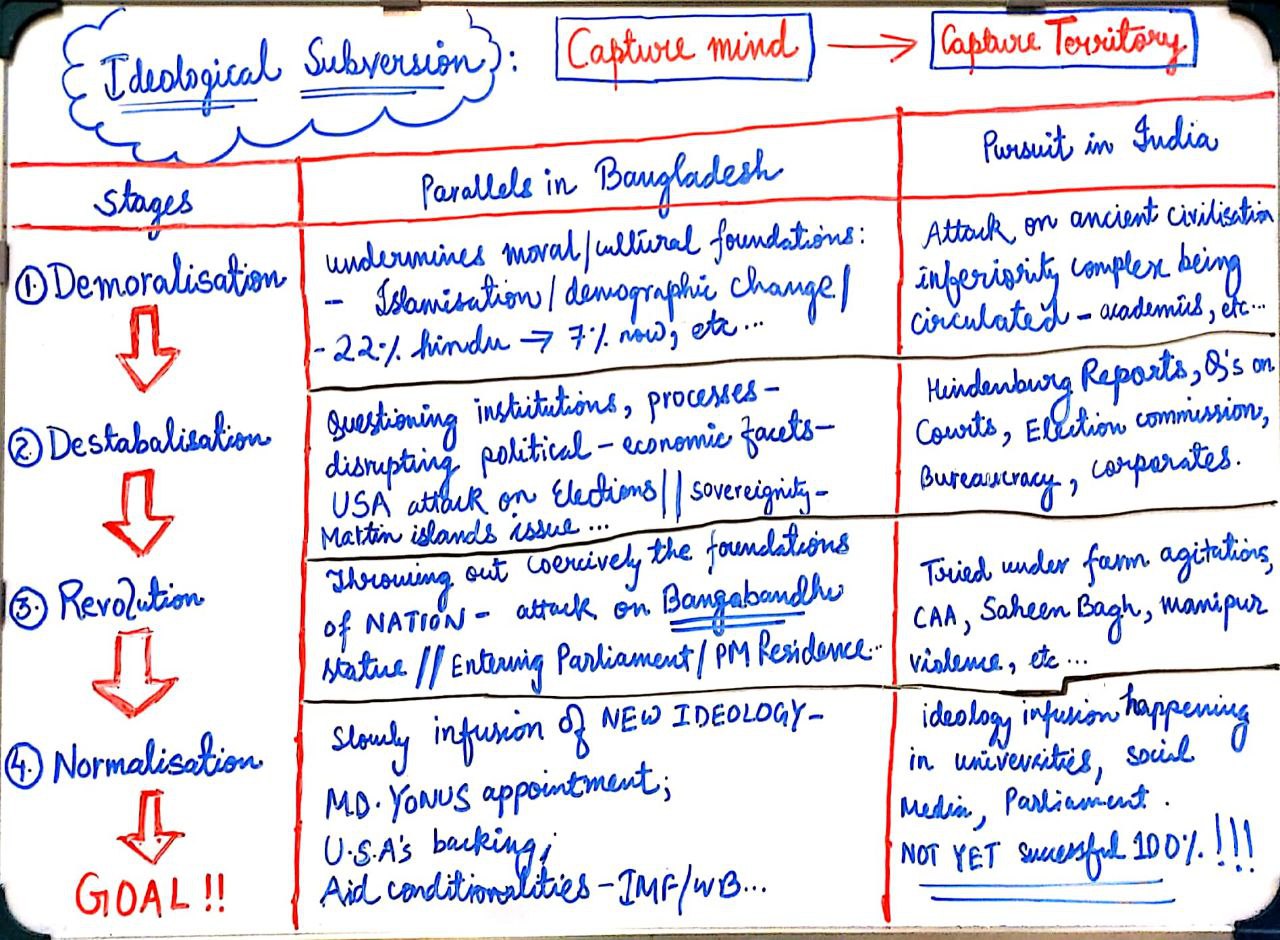 Ideological Subversion: Capture mind → Capture Territory
Stages
Parallels in Bangladesh
Pursuit in India
1. Demoralisation
undermines moral/cultural foundations:
- Islamisation/demographic change/
- 22% hindu → 7% now, etc...
Attack on ancient civilisation
inferiority complex being
circulated - academics, etc...
2. Destabalisation
Questioning institutions, processes-
disrupting political-economic facets-
USA attack on Elections || sovereignity-
Martin islands issue ...
Hindenburg Reports, Q's on
Courts, Election commission,
Bureaucracy, corporates.
3. Revolution
Throwing out coercively the foundations
of NATION - attack on Bangabandhu
statue // Entering Parliament / PM Residence...
Tried under farm agitations,
CAA, Saheen Bagh, Manipur
violence, etc...
4. Normalisation
Slowly infusion of NEW IDEOLOGY-
M.D. YONUS appointment;
U.S.A's backing;
Aid conditionalities - IMF/WB...
ideology infusion happening
in universities, social
Media, Parliament.
NOT YET successful 100%.!!!
GOAL!!